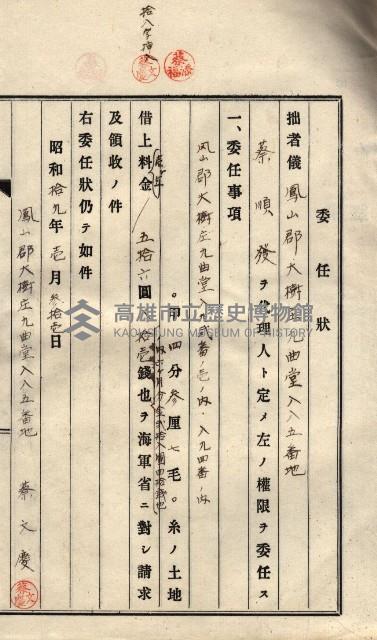 拾八字挿入
蔡添福
蔡文慶
委任狀
拙者儀鳳山郡大樹庄九曲堂八八五番地
蔡順發ヲ代理人ト定メ左ノ權限ヲ委任ス
一、委任事項
鳳山郡大樹庄九曲堂八九貳番ノ壱ノ内、八九四番ノ内
〇甲四分參厘七毛〇糸ノ土地
借上料金 五拾六圓 拾壱錢也ヲ海軍省ニ對シ請求
及領收ノ件
右委任狀仍テ如件
昭和拾九年壱月參拾壱日
鳳山郡大樹庄九曲堂八八五番地 蔡文慶
高雄市立歷史博物館
KAOHSIUNG MUSEUM OF HISTORY